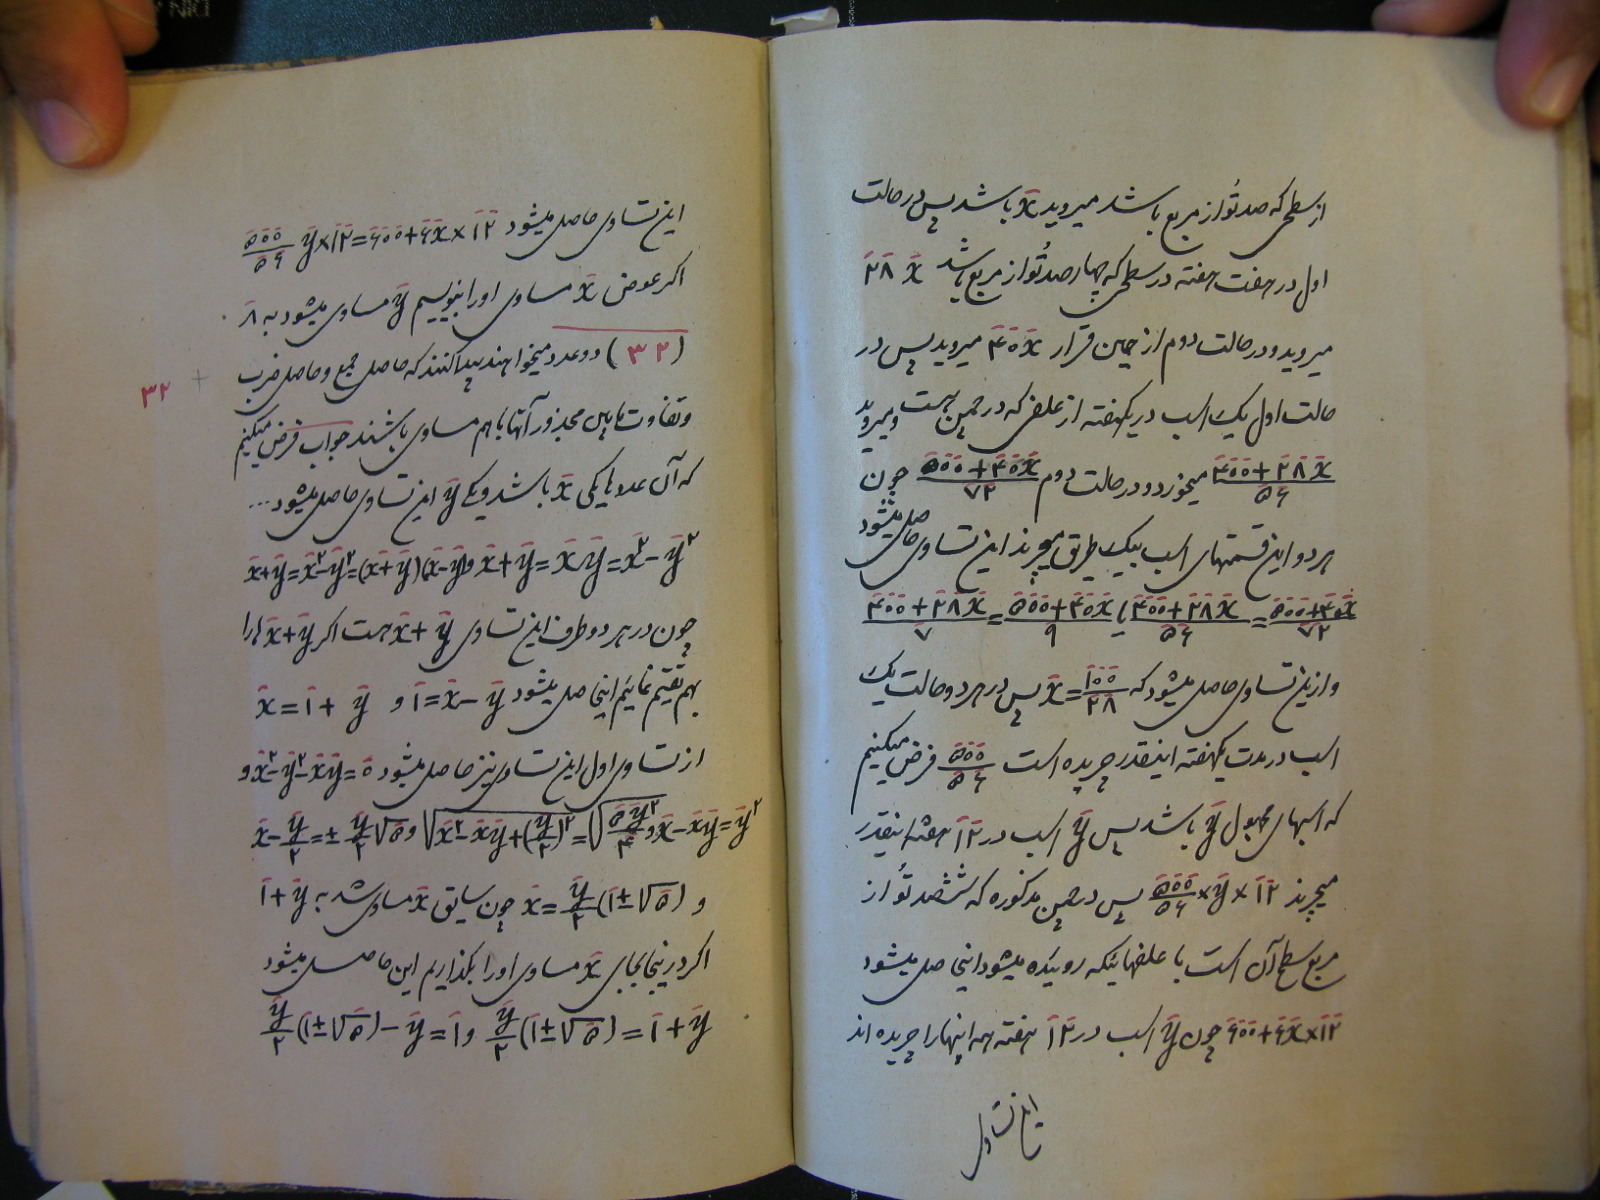 از سطحی که صد تُواز مربع باشد میروید x باشد پس در حالت
اول در هفت هفته در سطحی که چهارصد تُواز مربع باشد ۲۸ x
میروید و در حالت دوم از همین قرار ۴۰x میروید پس در
حالت اول یک اسب در یکهفته از علفی که در چمن هست و میروید
۴۰۰+۲۸x/۵۶ میخورد و در حالت دوم ۵۰۰+۴۰x/۷۲ چون
هر دو این قسمتهای اسب بیک طریق میچرند این تساوی حاصل میشود
۵۰۰+۴۰x/۷۲ = ۴۰۰+۲۸x/۵۶ یا ۵۰۰+۴۰x/۹ = ۴۰۰+۲۸x/۷
و ازین تساوی حاصل میشود که x = ۱۰۰/۲۸ پس در هر دو حالت یک
اسب در مدت یکهفته اینقدر چریده است ۵۰۰/۵۶ فرض میکنیم
که اسبهای مجهول y باشد پس y اسب در ۱۲ هفته اینقدر
میچرند ۵۰۰/۵۶ × y × ۱۲ پس در چمن مذکوره که ششصد تُواز
مربع سطح آن است با علفهائیکه روئیده میشود اینجا حاصل میشود
۶۰۰+۶x×۱۲ چون y اسب در ۱۲ هفته همه اینها را چریده اند
این تساوی
این تساوی حاصل میشود ۵۰۰/۵۶ y×۱۲=۶۰۰+۶x×۱۲
اکر عوض x مساوی او را بنویسیم y مساوی میشود به ۸
(۳۲) دو عدد میخواهند پیدا کنند که حاصل جمع و حاصل ضرب
۳۲
و تفاوت مابین مجذور آنها با هم مساوی باشند جواب فرض میکنیم
که آن عددها یکی x باشد و یکی y این تساوی حاصل میشود ...
x+y = xy = x²−y² و x+y=x²−y²=(x+y)(x−y)
چون در هر دو طرف این تساوی x+y هست اکر x+y را
بهم تقسیم نمائیم اینجا حاصل میشود ۱=x−y و x=۱+y
از تساوی اول این تساوی نیز حاصل میشود x²−y²−xy=۰ و
x²−xy=y² و √x²−xy+(y/۲)²=√۵y²/۴ و x−y/۲=±y/۲√۵
و x=y/۲(۱±√۵) چون سابق x مساوی شد به ۱+y
اکر درینجا بجای x مساوی او را بگذاریم این حاصل میشود
y/۲(۱±√۵)=۱+y و y/۲(۱±√۵)−y=۱